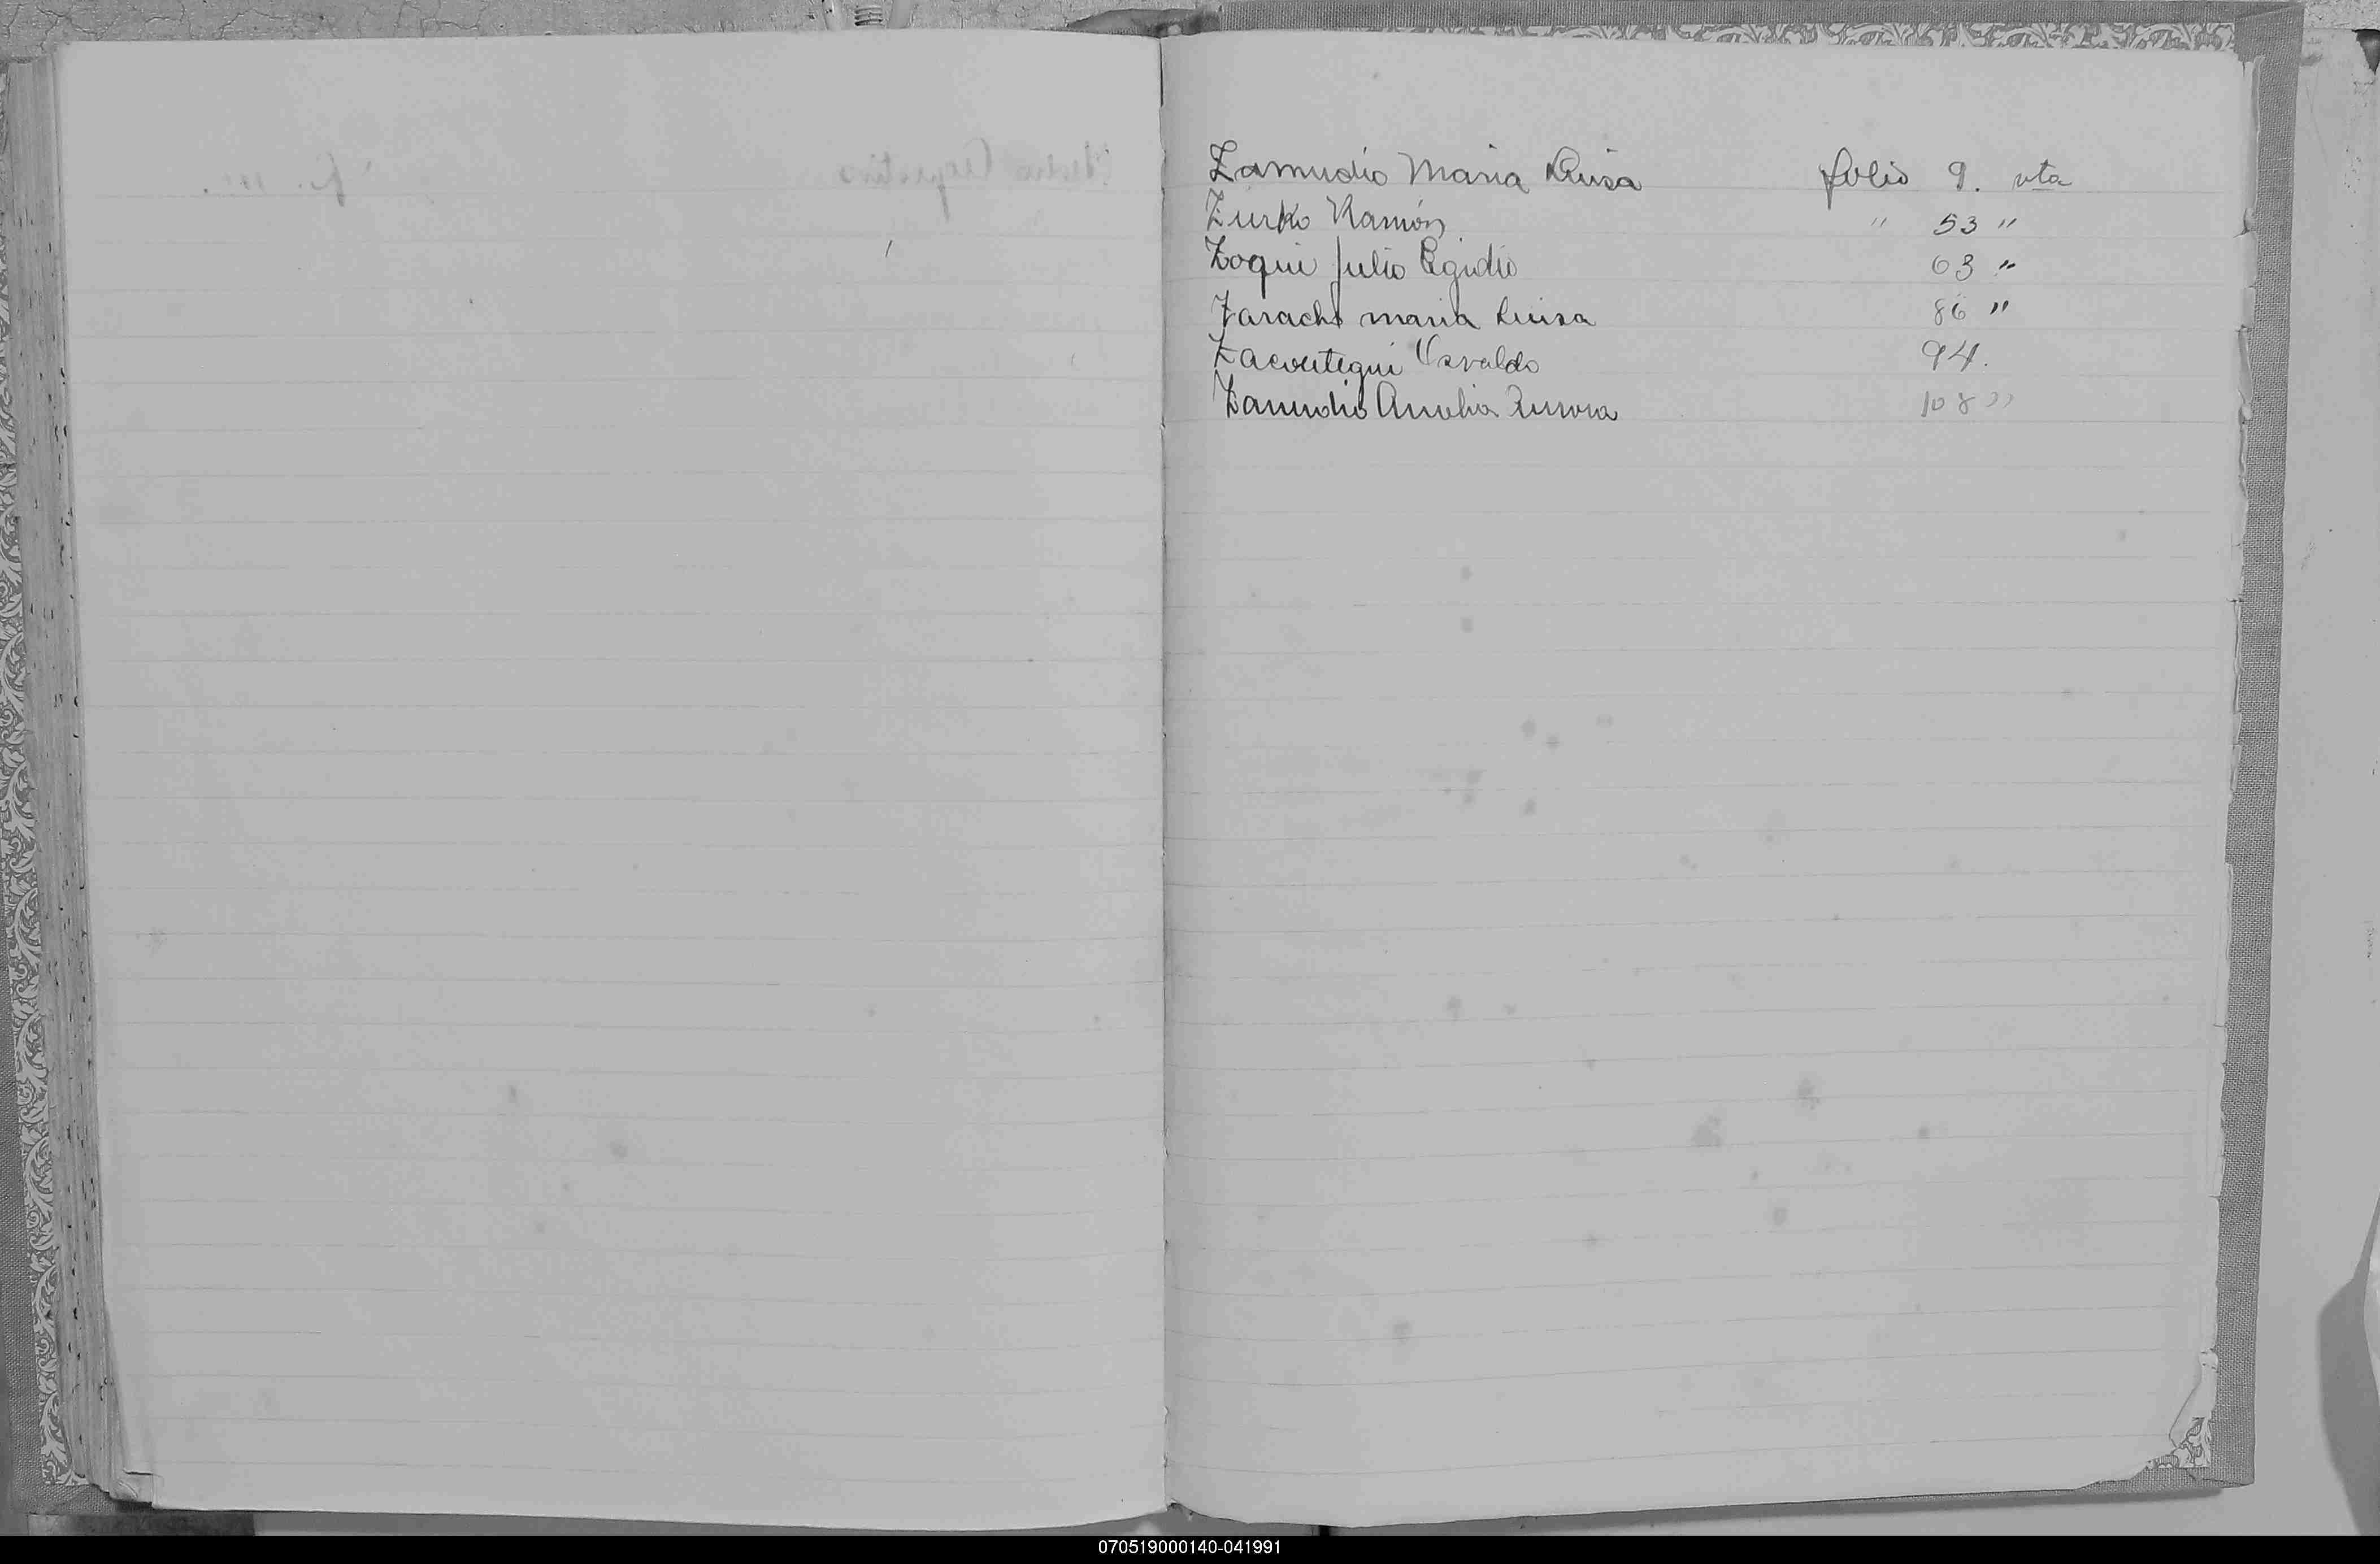 Zamudio Maria Luisa folio 9. vta
Zurko Ramón " 53 "
Zoqui Julio Egidio 63 "
Zaracho maria Luisa 86 "
Zacoutegui Osvaldo 94.
Zamudio Amelia Aurora 108 "
070519000140-041991